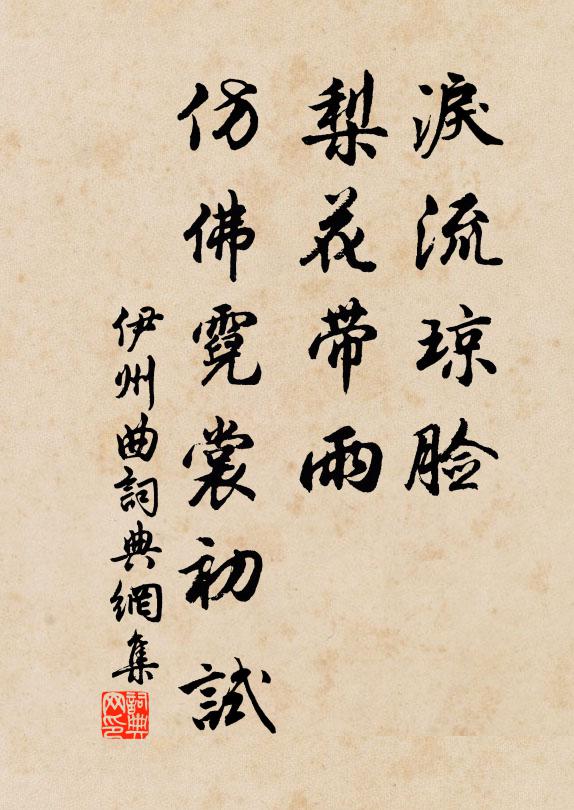 淚流琼脸
梨花带雨
仿佛霓裳初試
伊州曲詞典網集
詞典
网印